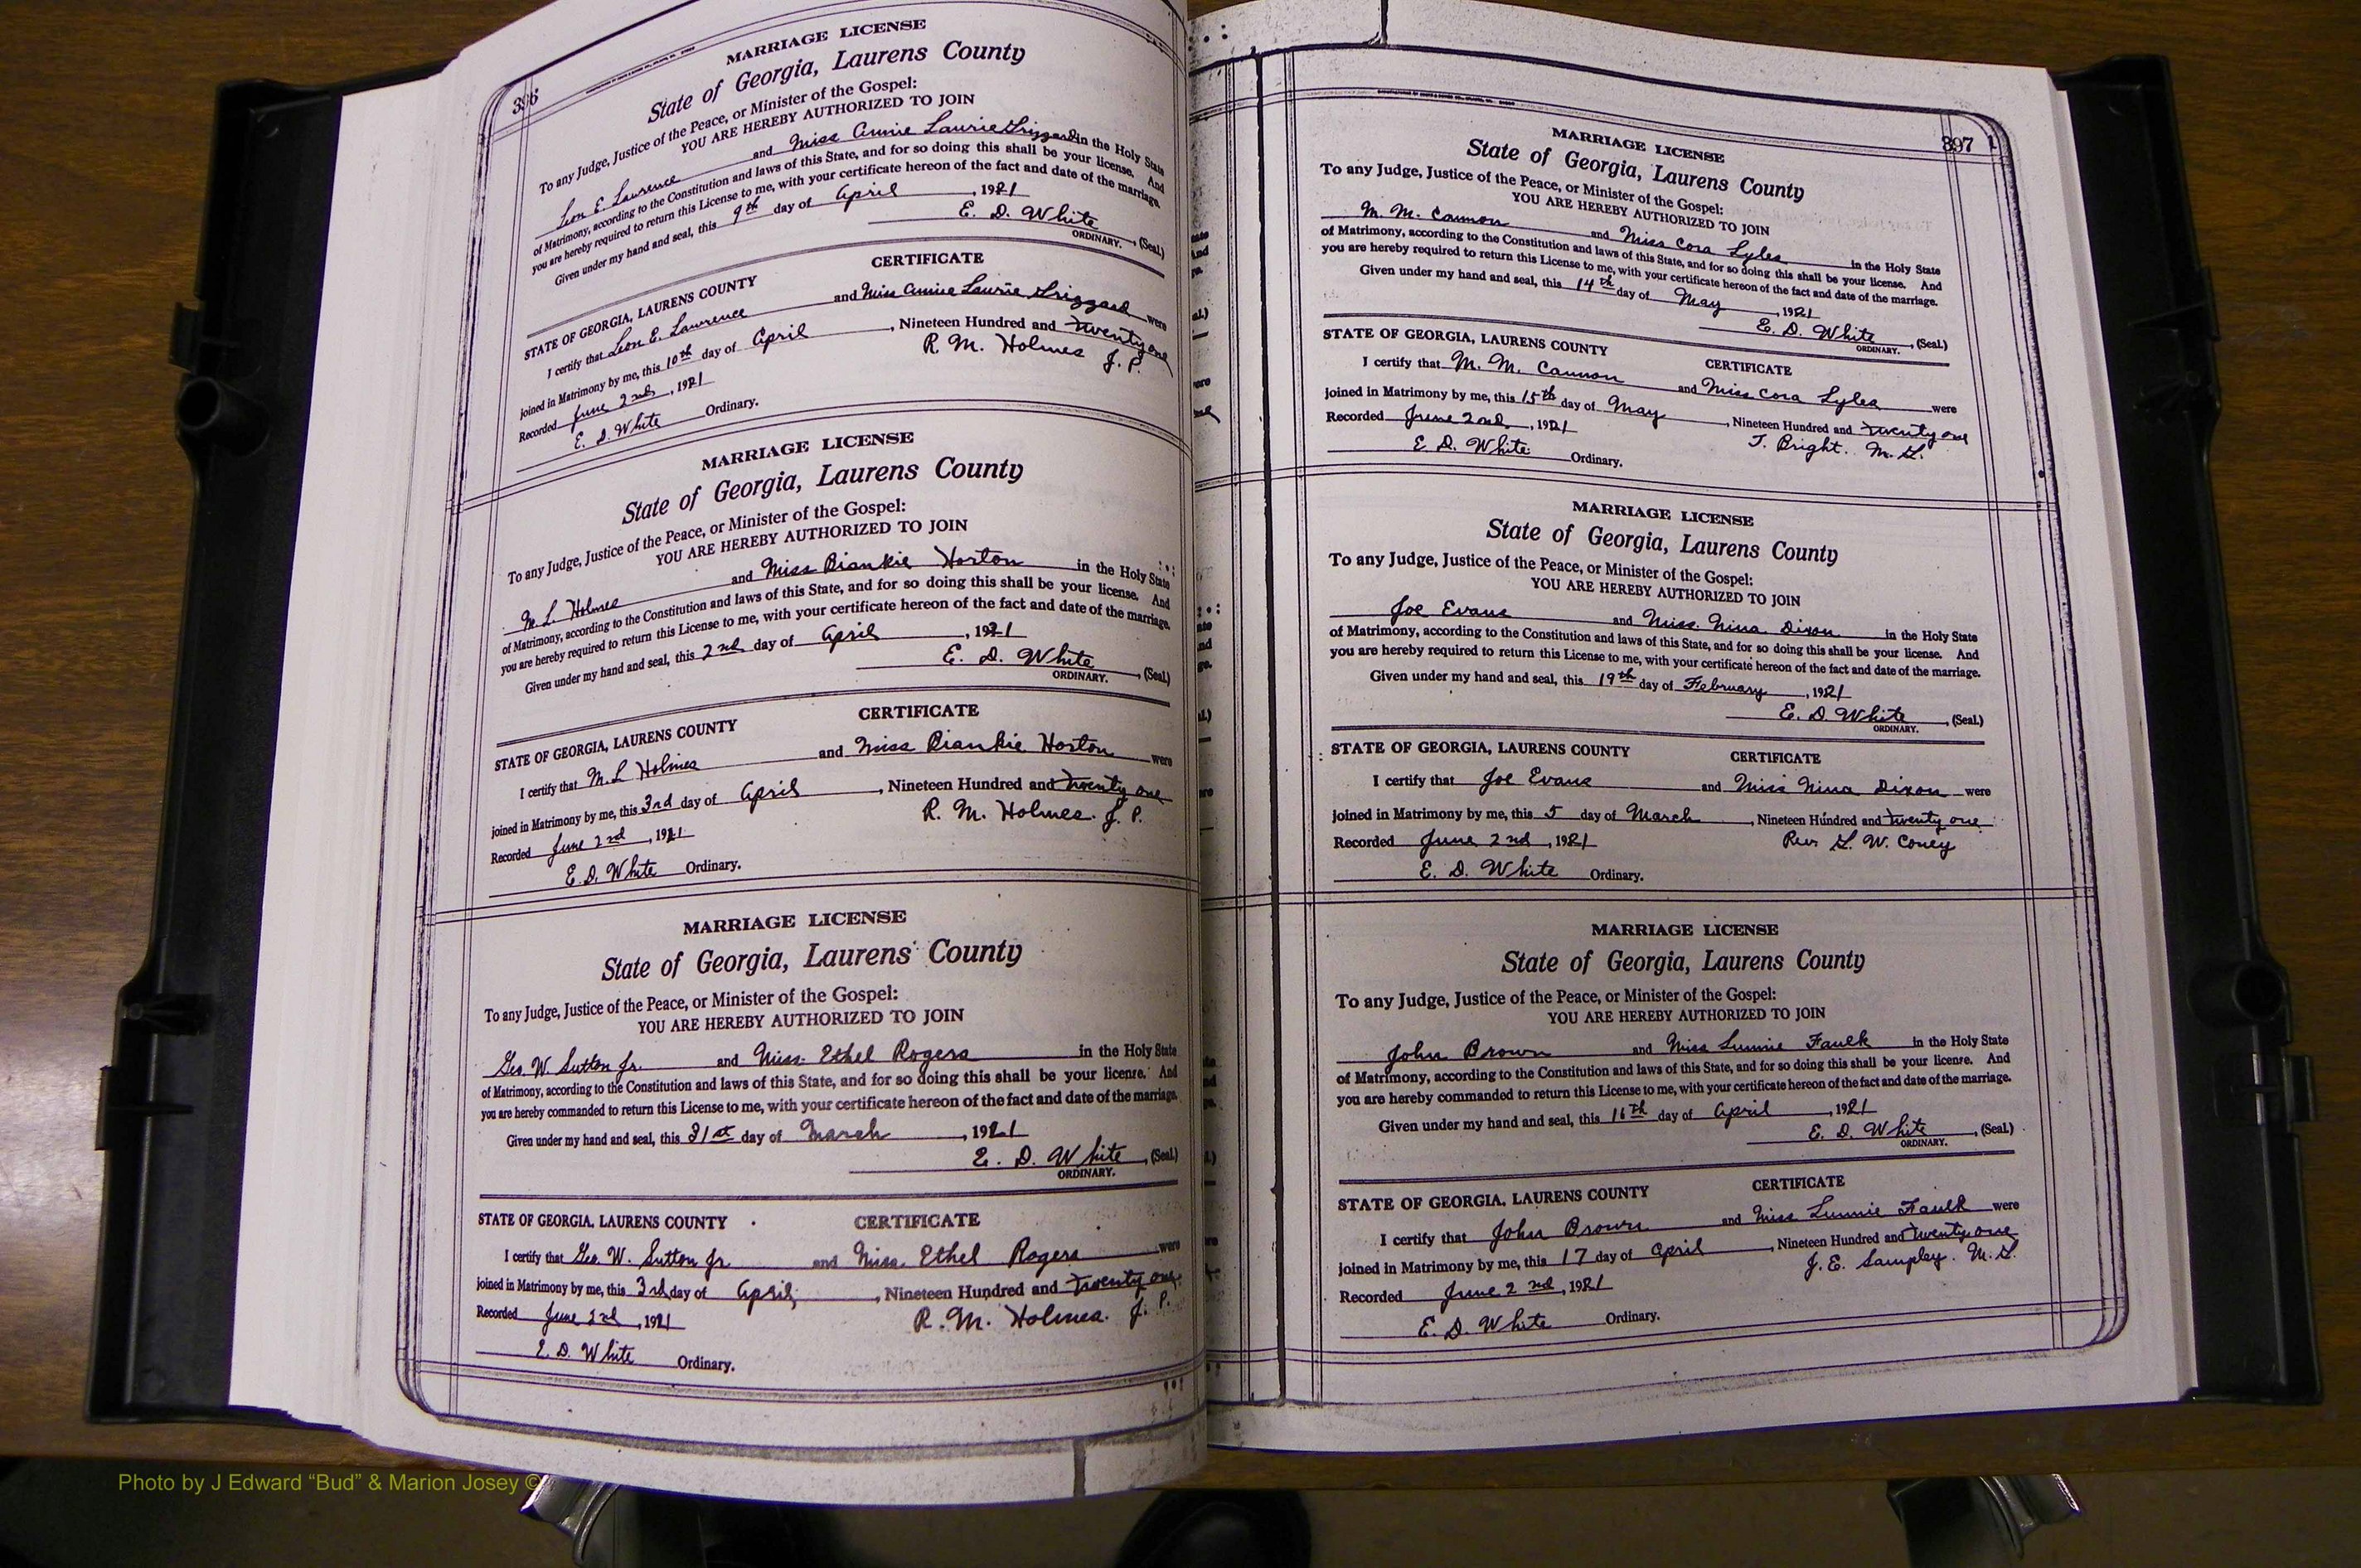 396
MARRIAGE LICENSE
State of Georgia, Laurens County
To any Judge, Justice of the Peace, or Minister of the Gospel:
YOU ARE HEREBY AUTHORIZED TO JOIN
Leon E. Lawrence and Miss Annie Laurie Grizzard in the Holy State
of Matrimony, according to the Constitution and laws of this State, and for so doing this shall be your license. And
you are hereby required to return this License to me, with your certificate hereon of the fact and date of the marriage.
Given under my hand and seal, this 9th day of April, 1921
E. D. White, (Seal.)
ORDINARY.
CERTIFICATE
STATE OF GEORGIA, LAURENS COUNTY
I certify that Leon E. Lawrence and Miss Annie Laurie Grizzard were
joined in Matrimony by me, this 10th day of April, Nineteen Hundred and Twenty one
Recorded June 2nd, 1921 R. M. Holmes J. P.
E. D. White Ordinary.
MARRIAGE LICENSE
State of Georgia, Laurens County
To any Judge, Justice of the Peace, or Minister of the Gospel:
YOU ARE HEREBY AUTHORIZED TO JOIN
M. L. Holmes and Miss Biankie Horton in the Holy State
of Matrimony, according to the Constitution and laws of this State, and for so doing this shall be your license. And
you are hereby required to return this License to me, with your certificate hereon of the fact and date of the marriage.
Given under my hand and seal, this 2nd day of April, 1921
E. D. White, (Seal.)
ORDINARY.
CERTIFICATE
STATE OF GEORGIA, LAURENS COUNTY
I certify that M. L Holmes and Miss Biankie Horton were
joined in Matrimony by me, this 3rd day of April, Nineteen Hundred and Twenty one
Recorded June 2nd, 1921 R. M. Holmes. J. P.
E. D. White Ordinary.
MARRIAGE LICENSE
State of Georgia, Laurens County
To any Judge, Justice of the Peace, or Minister of the Gospel:
YOU ARE HEREBY AUTHORIZED TO JOIN
Geo. W. Sutton Jr. and Miss. Ethel Rogers in the Holy State
of Matrimony, according to the Constitution and laws of this State, and for so doing this shall be your license. And
you are hereby commanded to return this License to me, with your certificate hereon of the fact and date of the marriage.
Given under my hand and seal, this 31st day of March, 1921
E. D. White, (Seal)
ORDINARY.
STATE OF GEORGIA, LAURENS COUNTY CERTIFICATE
I certify that Geo. W. Sutton Jr and Miss. Ethel Rogers were
joined in Matrimony by me, this 3rd day of April, Nineteen Hundred and Twenty one
Recorded June 2nd, 1921 R. M. Holmes. J. P.
E. D. White Ordinary.
397
MARRIAGE LICENSE
State of Georgia, Laurens County
To any Judge, Justice of the Peace, or Minister of the Gospel:
YOU ARE HEREBY AUTHORIZED TO JOIN
M. M. Cannon and Miss Cora Lyles in the Holy State
of Matrimony, according to the Constitution and laws of this State, and for so doing this shall be your license. And
you are hereby required to return this License to me, with your certificate hereon of the fact and date of the marriage.
Given under my hand and seal, this 14th day of May, 1921
E. D. White, (Seal.)
ORDINARY.
STATE OF GEORGIA, LAURENS COUNTY CERTIFICATE
I certify that M. M. Cannon and Miss Cora Lyles were
joined in Matrimony by me, this 15th day of May, Nineteen Hundred and Twenty one
Recorded June 2nd, 1921 T. Bright. M. G.
E. D. White Ordinary.
MARRIAGE LICENSE
State of Georgia, Laurens County
To any Judge, Justice of the Peace, or Minister of the Gospel:
YOU ARE HEREBY AUTHORIZED TO JOIN
Joe Evans and Miss. Nina Dixon in the Holy State
of Matrimony, according to the Constitution and laws of this State, and for so doing this shall be your license. And
you are hereby required to return this License to me, with your certificate hereon of the fact and date of the marriage.
Given under my hand and seal, this 19th day of February, 1921
E. D. White, (Seal.)
ORDINARY.
STATE OF GEORGIA, LAURENS COUNTY CERTIFICATE
I certify that Joe Evans and Miss Nina Dixon were
joined in Matrimony by me, this 5 day of March, Nineteen Hundred and Twenty one
Recorded June 2nd, 1921 Rev. G. W. Coney
E. D. White Ordinary.
MARRIAGE LICENSE
State of Georgia, Laurens County
To any Judge, Justice of the Peace, or Minister of the Gospel:
YOU ARE HEREBY AUTHORIZED TO JOIN
John Brown and Miss Lunnie Faulk in the Holy State
of Matrimony, according to the Constitution and laws of this State, and for so doing this shall be your license. And
you are hereby commanded to return this License to me, with your certificate hereon of the fact and date of the marriage.
Given under my hand and seal, this 16th day of April, 1921
E. D. White, (Seal.)
ORDINARY.
STATE OF GEORGIA, LAURENS COUNTY CERTIFICATE
I certify that John Brown and Miss Lunnie Faulk were
joined in Matrimony by me, this 17 day of April, Nineteen Hundred and Twenty one
Recorded June 2nd, 1921 J. E. Sampley. M. G.
E. D. White Ordinary.
Photo by J Edward “Bud” & Marion Josey ©